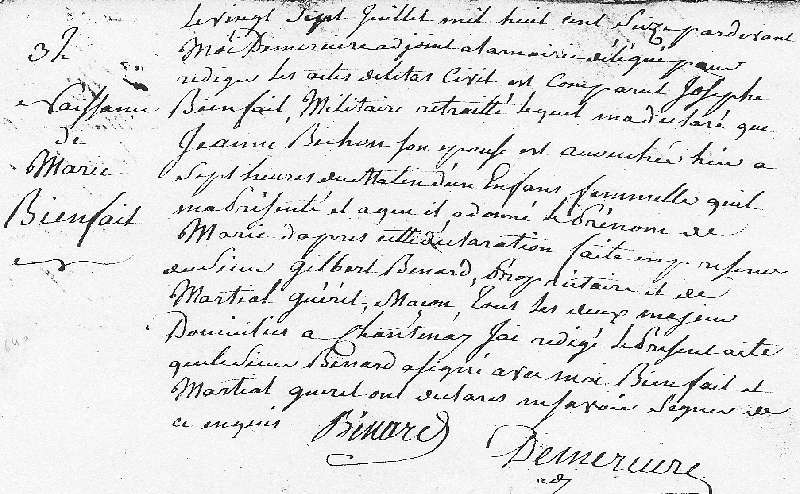 32
Naissance
de
Marie
Bienfait
Le vingt Sept Juillet mil huit cent Seize pardevant
Moi Demereure adjoint a la mairie délégué pour
rediger les actes de letat Civil est Comparu Josephe
Bienfait, Militaire retraitté lequel ma declaré que
Jeanne Bichon son epouse est accouchée hier a
Sept heures du Matin d'un Enfant femmelle quil
ma présenté et aquil a donné le Prénom de
Marie daprès cette déclaration faite en presence
du Sieur Gilbert Benard, Propriétaire et de
Martial guéret, Maçon, Tous les deux majeur
Domiciliés a Chantenay Jai redigé le Présent acte
que le Sieur Benard a signé avec moi Bienfait et
Martial gueret ont declarés ne savoir Signer de
ce enquis
Bénard
Demereure
adj